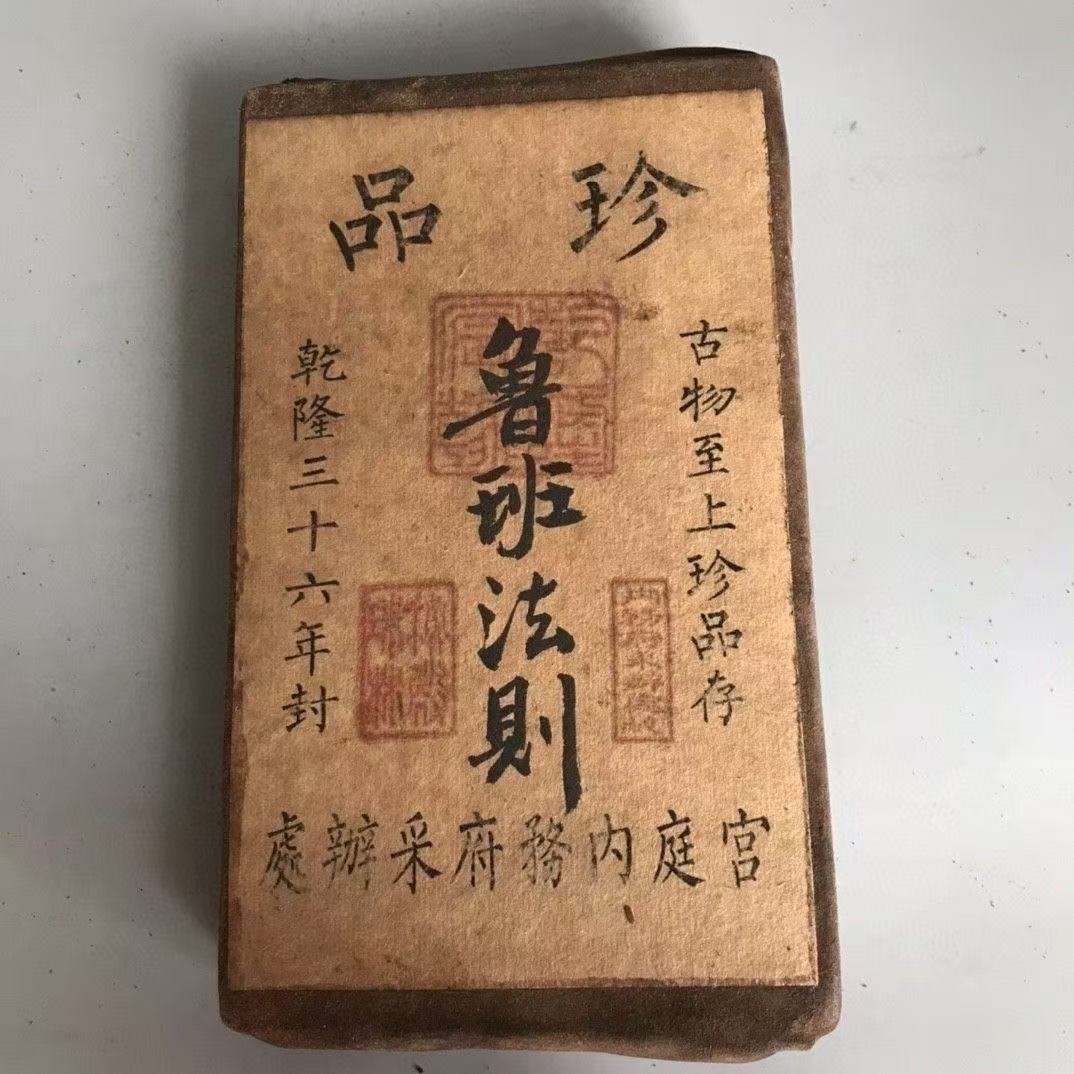 珍品
古物至上珍品存
魯班法則
乾隆三十六年封
宫庭内務府采辦處